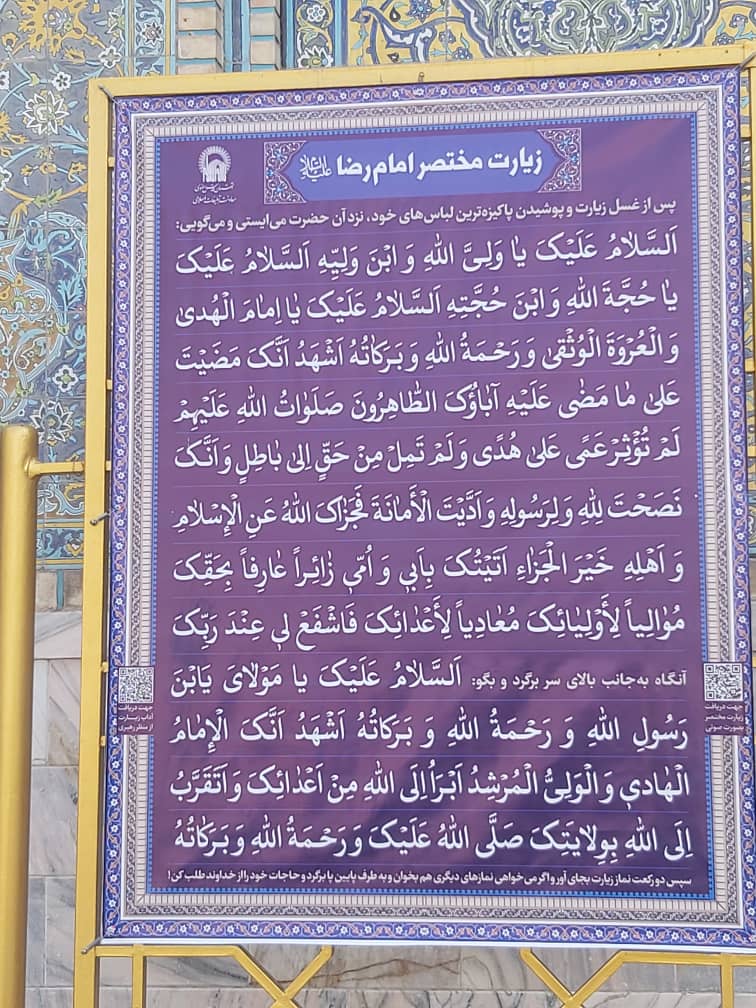 زیارت مختصر امام رضا علیه‌السلام
پس از غسل زیارت و پوشیدن پاکیزه‌ترین لباس‌های خود، نزد آن حضرت می‌ایستی و می‌گویی:
اَلسَّلامُ عَلَیْکَ یا وَلِیَّ اللهِ وَ ابْنَ وَلِیِّهِ اَلسَّلامُ عَلَیْکَ
یا حُجَّةَ اللهِ وَ ابْنَ حُجَّتِهِ اَلسَّلامُ عَلَیْکَ یا اِمامَ الْهُدیٰ
وَ الْعُرْوَةَ الْوُثْقی وَ رَحْمَةُ اللهِ وَ بَرَکاتُهُ اَشْهَدُ اَنَّکَ مَضَیْتَ
عَلیٰ ما مَضیٰ عَلَیْهِ آباؤُکَ الطّاهِرُونَ صَلَواتُ اللهِ عَلَیْهِمْ
لَمْ تُؤْثِرْ عَمًی عَلیٰ هُدًی وَ لَمْ تَمِلْ مِنْ حَقٍّ اِلیٰ باطِلٍ وَ اَنَّکَ
نَصَحْتَ لِلّٰهِ وَ لِرَسُولِهِ وَ اَدَّیْتَ الْأَمانَةَ فَجَزاکَ اللهُ عَنِ الْإِسْلامِ
وَ اَهْلِهِ خَیْرَ الْجَزاءِ اَتَیْتُکَ بِاَبی وَ اُمّی زائِراً عارِفاً بِحَقِّکَ
مُوالِیاً لِأَوْلِیائِکَ مُعادِیاً لِأَعْدائِکَ فَاشْفَعْ لی عِنْدَ رَبِّکَ
آنگاه به‌جانب بالای سر برگرد و بگو: اَلسَّلامُ عَلَیْکَ یا مَوْلایَ یَابْنَ
رَسُولِ اللهِ وَ رَحْمَةُ اللهِ وَ بَرَکاتُهُ اَشْهَدُ اَنَّکَ الْإِمامُ
الْهادی وَ الْوَلِیُّ الْمُرْشِدُ اَبْرَأُ اِلَی اللهِ مِنْ اَعْدائِکَ وَ اَتَقَرَّبُ
اِلَی اللهِ بِوِلایَتِکَ صَلَّی اللهُ عَلَیْکَ وَ رَحْمَةُ اللهِ وَ بَرَکاتُهُ
سپس دو رکعت نماز زیارت بجای آور و اگر می‌خواهی نمازهای دیگری هم بخوان و به طرف پایین پا برگرد و حاجات خود را از خداوند طلب کن!
جهت دریافت
زیارت مختصر
بصورت صوتی
جهت دریافت
آداب زیارت
از منظر رهبری